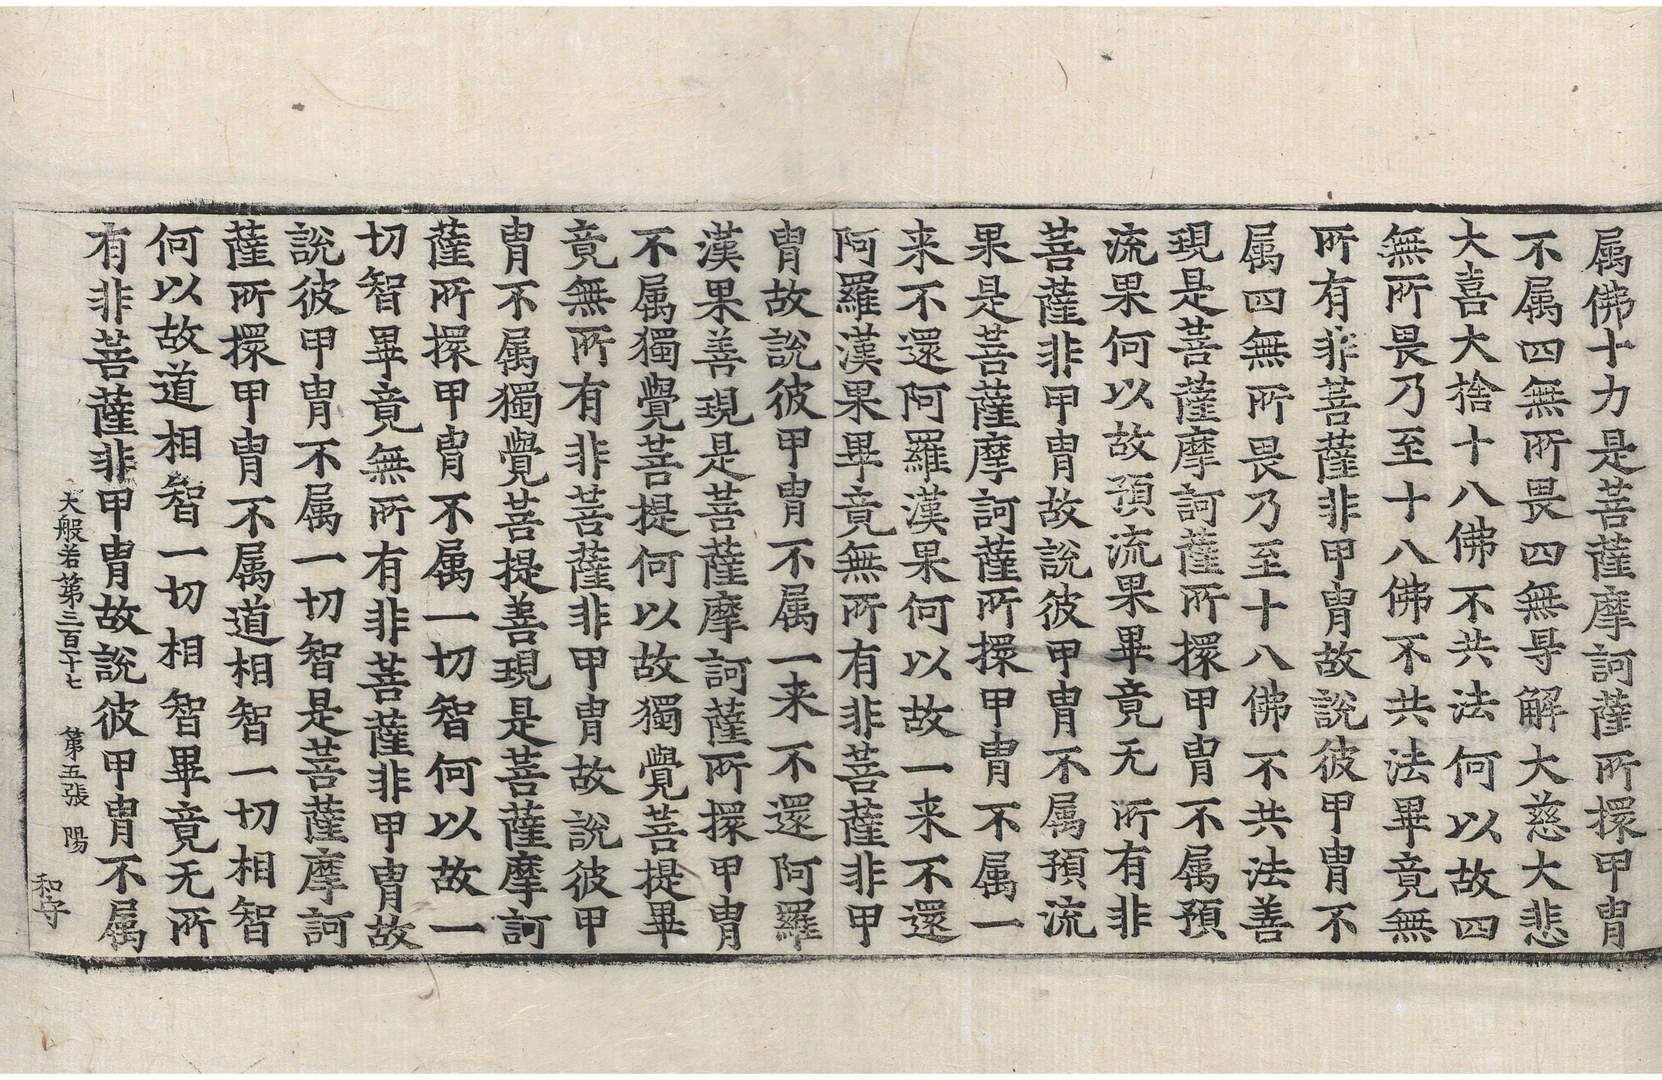 属佛十力是菩薩摩訶薩所擐甲冑
不属四無所畏四無导解大慈大悲
大喜大捨十八佛不共法何以故四
無所畏乃至十八佛不共法畢竟無
所有非菩薩非甲冑故說彼甲冑不
属四無所畏乃至十八佛不共法善
現是菩薩摩訶薩所擐甲冑不属預
流果何以故預流果畢竟无所有非
菩薩非甲冑故說彼甲冑不属預流
果是菩薩摩訶薩所擐甲冑不属一
来不還阿羅漢果何以故一来不還
阿羅漢果畢竟無所有非菩薩非甲
冑故說彼甲冑不属一来不還阿羅
漢果善現是菩薩摩訶薩所擐甲冑
不属獨覺菩提何以故獨覺菩提畢
竟無所有非菩薩非甲冑故說彼甲
冑不属獨覺菩提善現是菩薩摩訶
薩所擐甲冑不属一切智何以故一
切智畢竟無所有非菩薩非甲冑故
說彼甲冑不属一切智是菩薩摩訶
薩所擐甲冑不属道相智一切相智
何以故道相智一切相智畢竟无所
有非菩薩非甲冑故說彼甲冑不属
大般若第三百十七 第五張 陽
和守